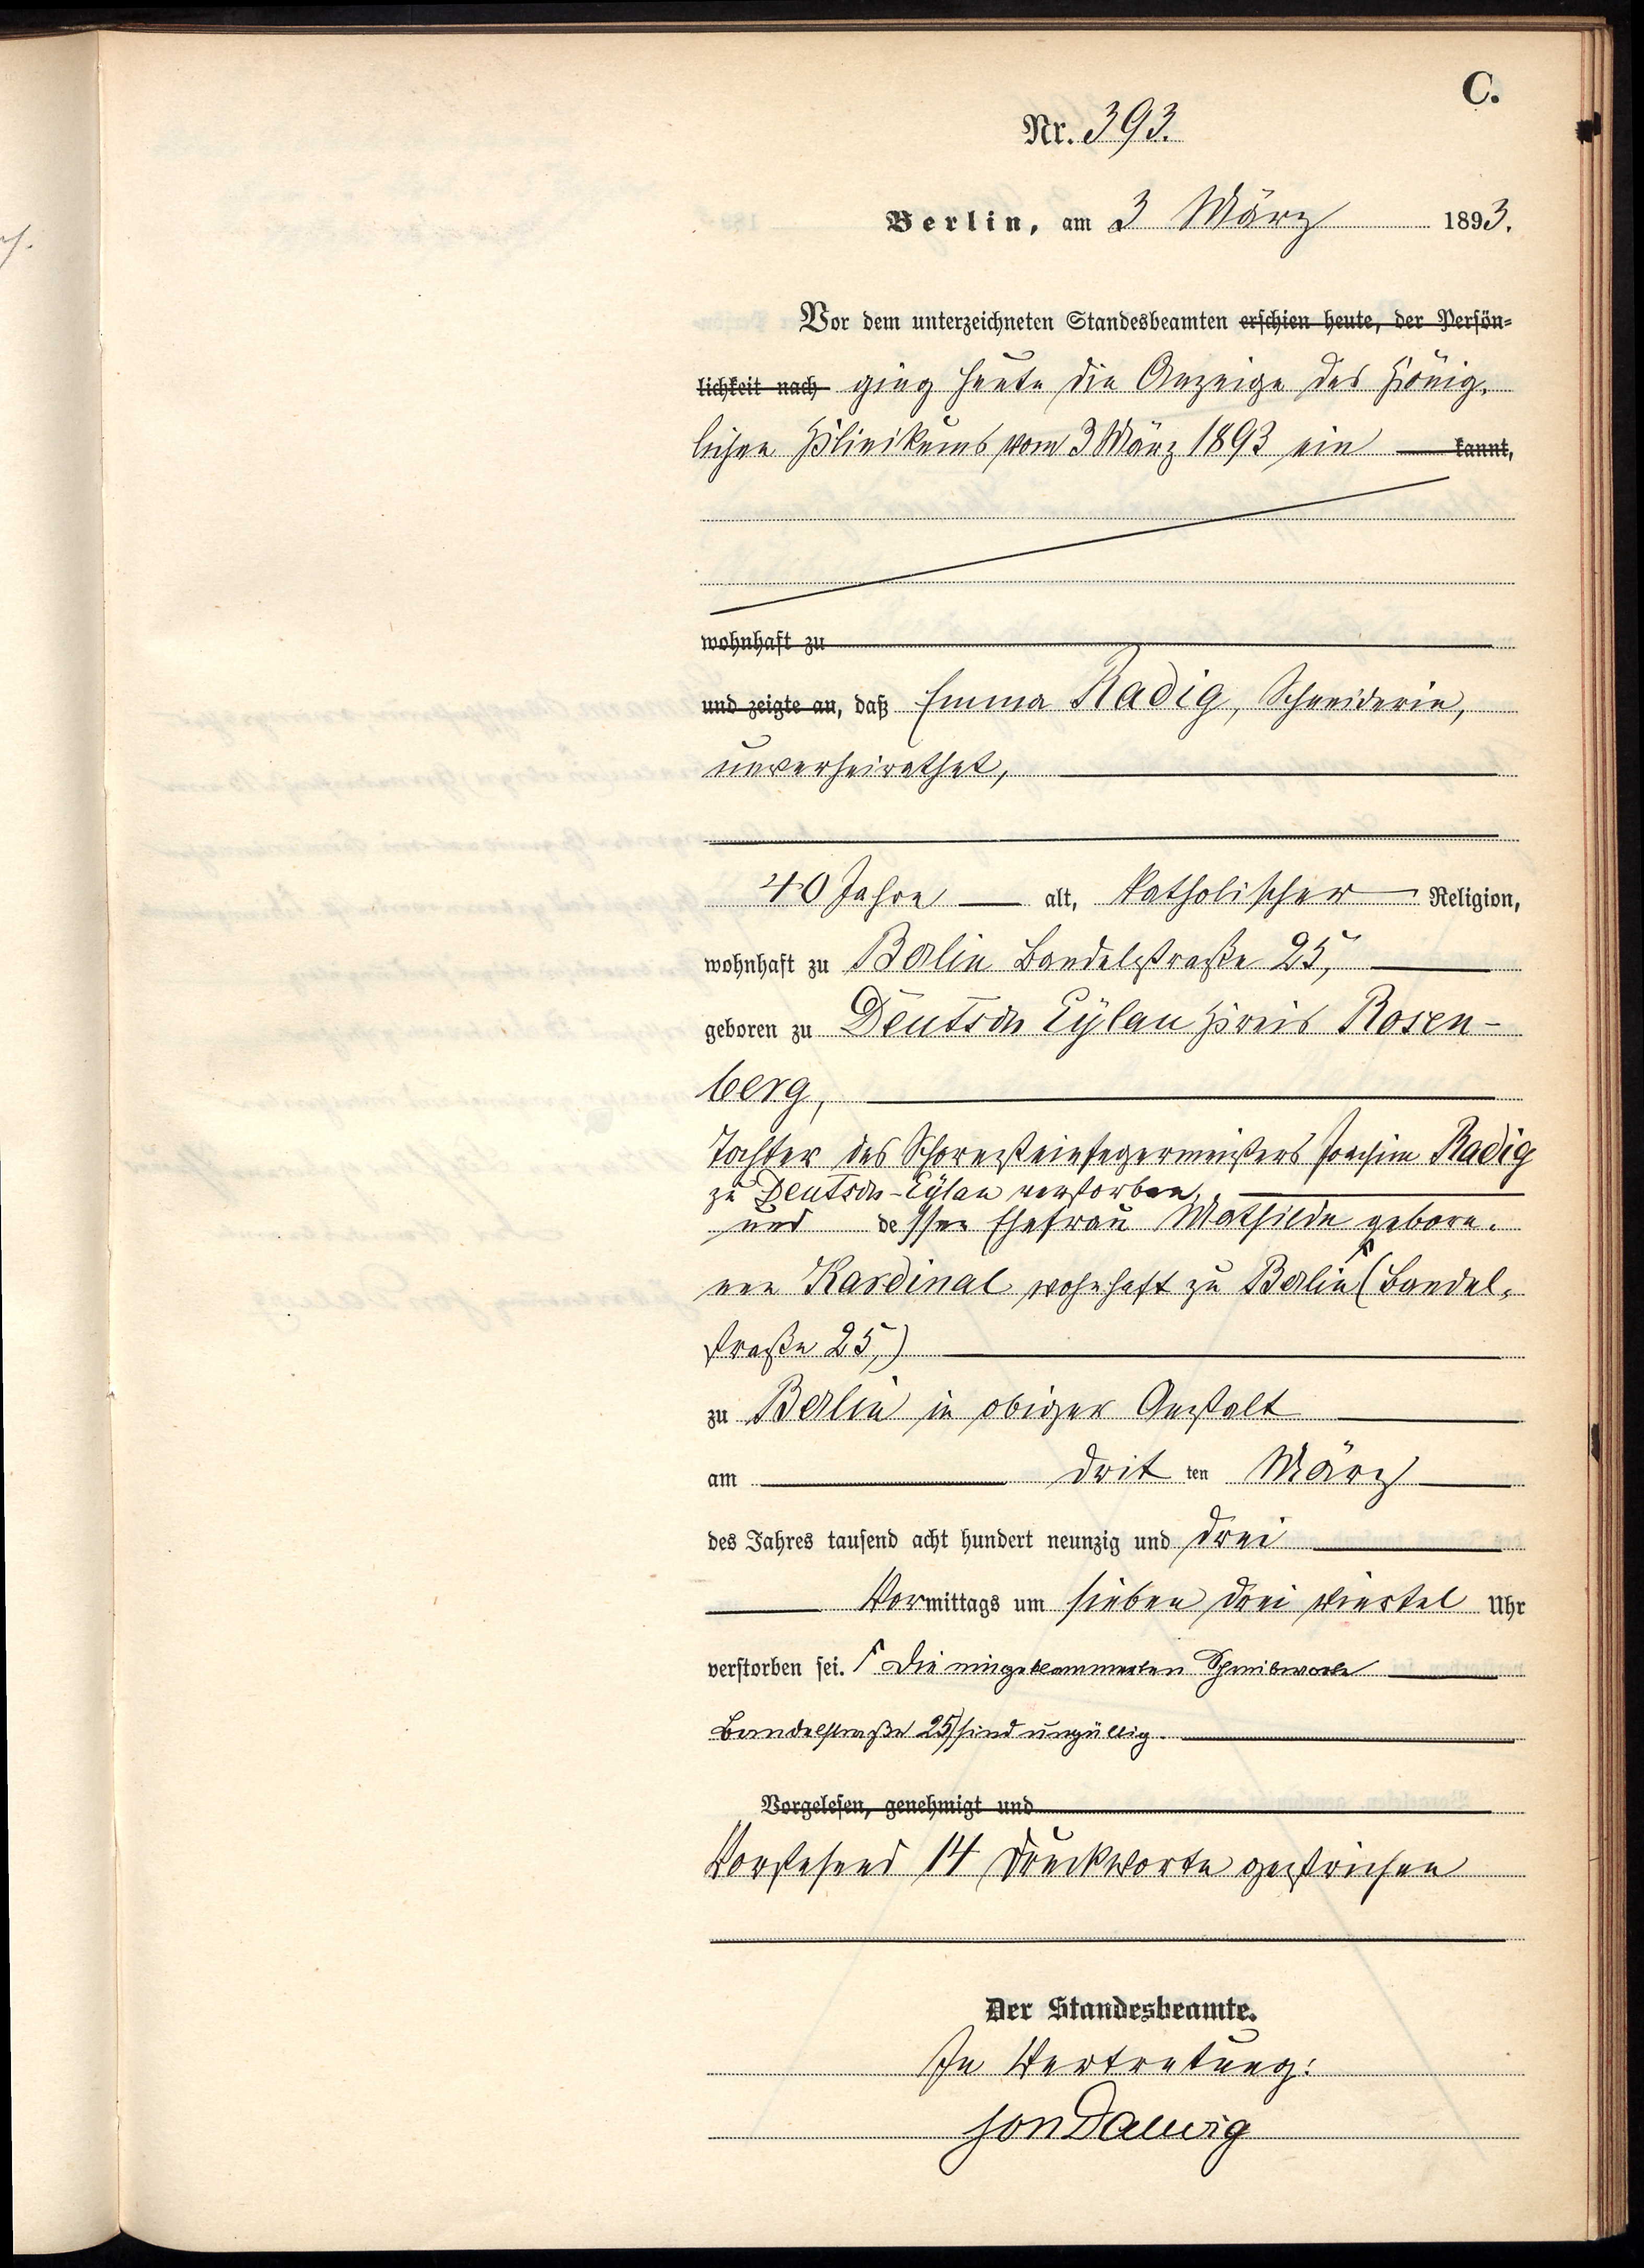 C.
Nr. 393.
Berlin, am 3 März 1893.
Vor dem unterzeichneten Standesbeamten erschien heute, der Persön-
lichkeit nach ging heute die Anzeige des König-
lichen Klinikums vom 3 März 1893 ein kannt,
wohnhaft zu
und zeigte an, daß Emma Radig, Schneiderin,
unverheirathet,
40 Jahre alt, katholischer Religion,
wohnhaft zu Berlin Bandelstraße 25,
geboren zu Deutsch Eylau Kreis Rosen-
berg,
Tochter des Schornsteinfegermeisters Joachim Radig
zu Deutsch-Eylau verstorben,
und dessen Ehefrau Mathilde gebore-
nen Kardinal wohnhaft zu Berlin (Bandel-
straße 25,)
zu Berlin in obiger Anstalt
am dritten März
des Jahres tausend acht hundert neunzig und drei
Vormittags um sieben drei viertel Uhr
verstorben sei. Die eingeklammerten Schreibworte
Bandelstraße 25) sind ungültig.
Vorgelesen, genehmigt und
Vorstehend 14 Druckworte gestrichen
Der Standesbeamte.
In Vertretung: